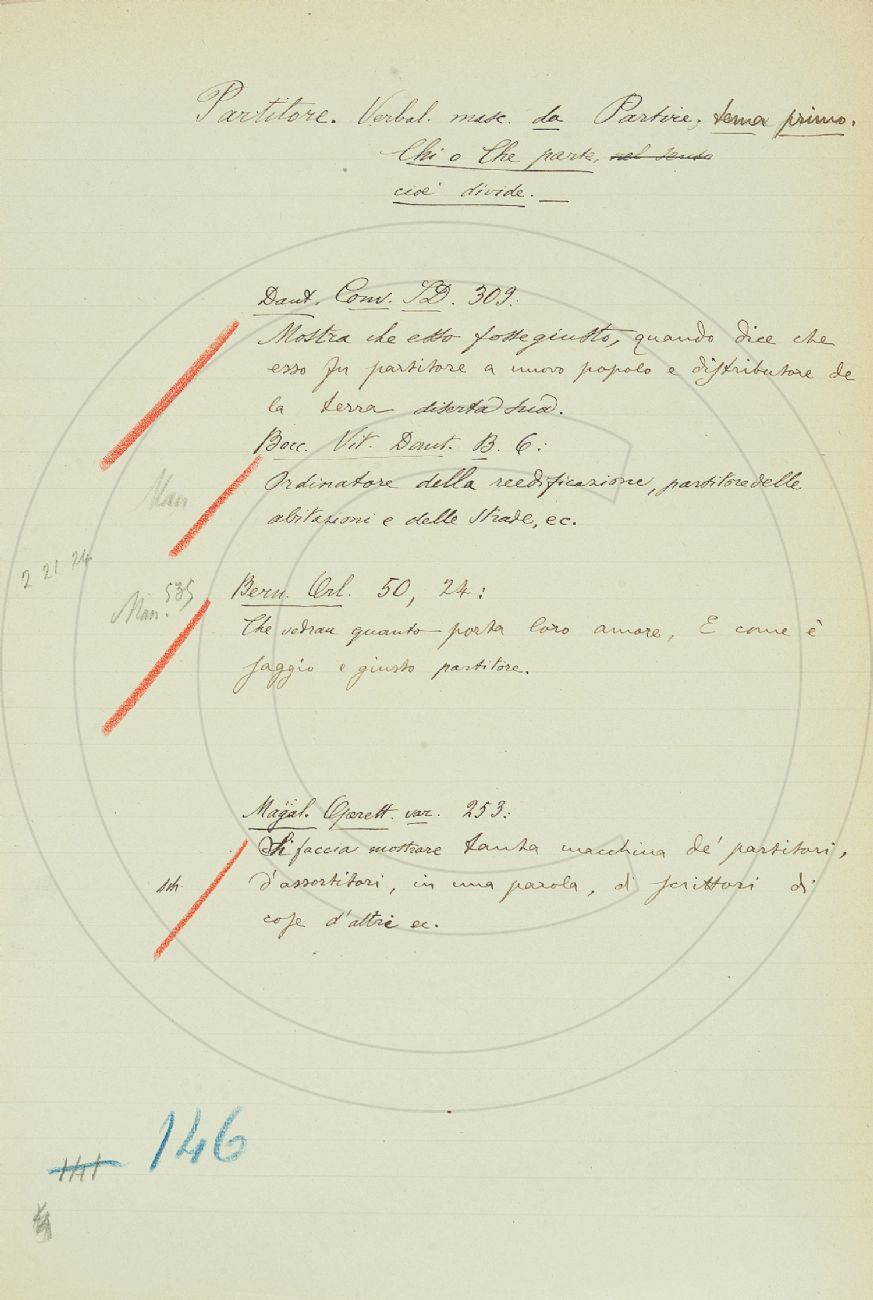 Partitore. Verbal. masc. da Partire, tema primo.
Chi o Che parte, nel senso
cioè divide. —
Dant. Conv. SD. 309:
Mostra che esso fosse giusto, quando dice che
esso fu partitore a nuovo popolo e distributore de
la terra diserta sua.
Bocc. Vit. Dant. B. 6:
Ordinatore della reedificazione, partitore delle
Man
abitazioni e delle strade, ec.
2 21 24
Man. 535
Bern. Orl. 50, 24:
Che vedran quanto porta loro amore, E come è
saggio e giusto partitore.
Magal. Operett. var. 253:
Si faccia mostrare tanta macchina de' partitori,
d'assortitori, in una parola, di scrittori di
cose d'altri ec.
146
141